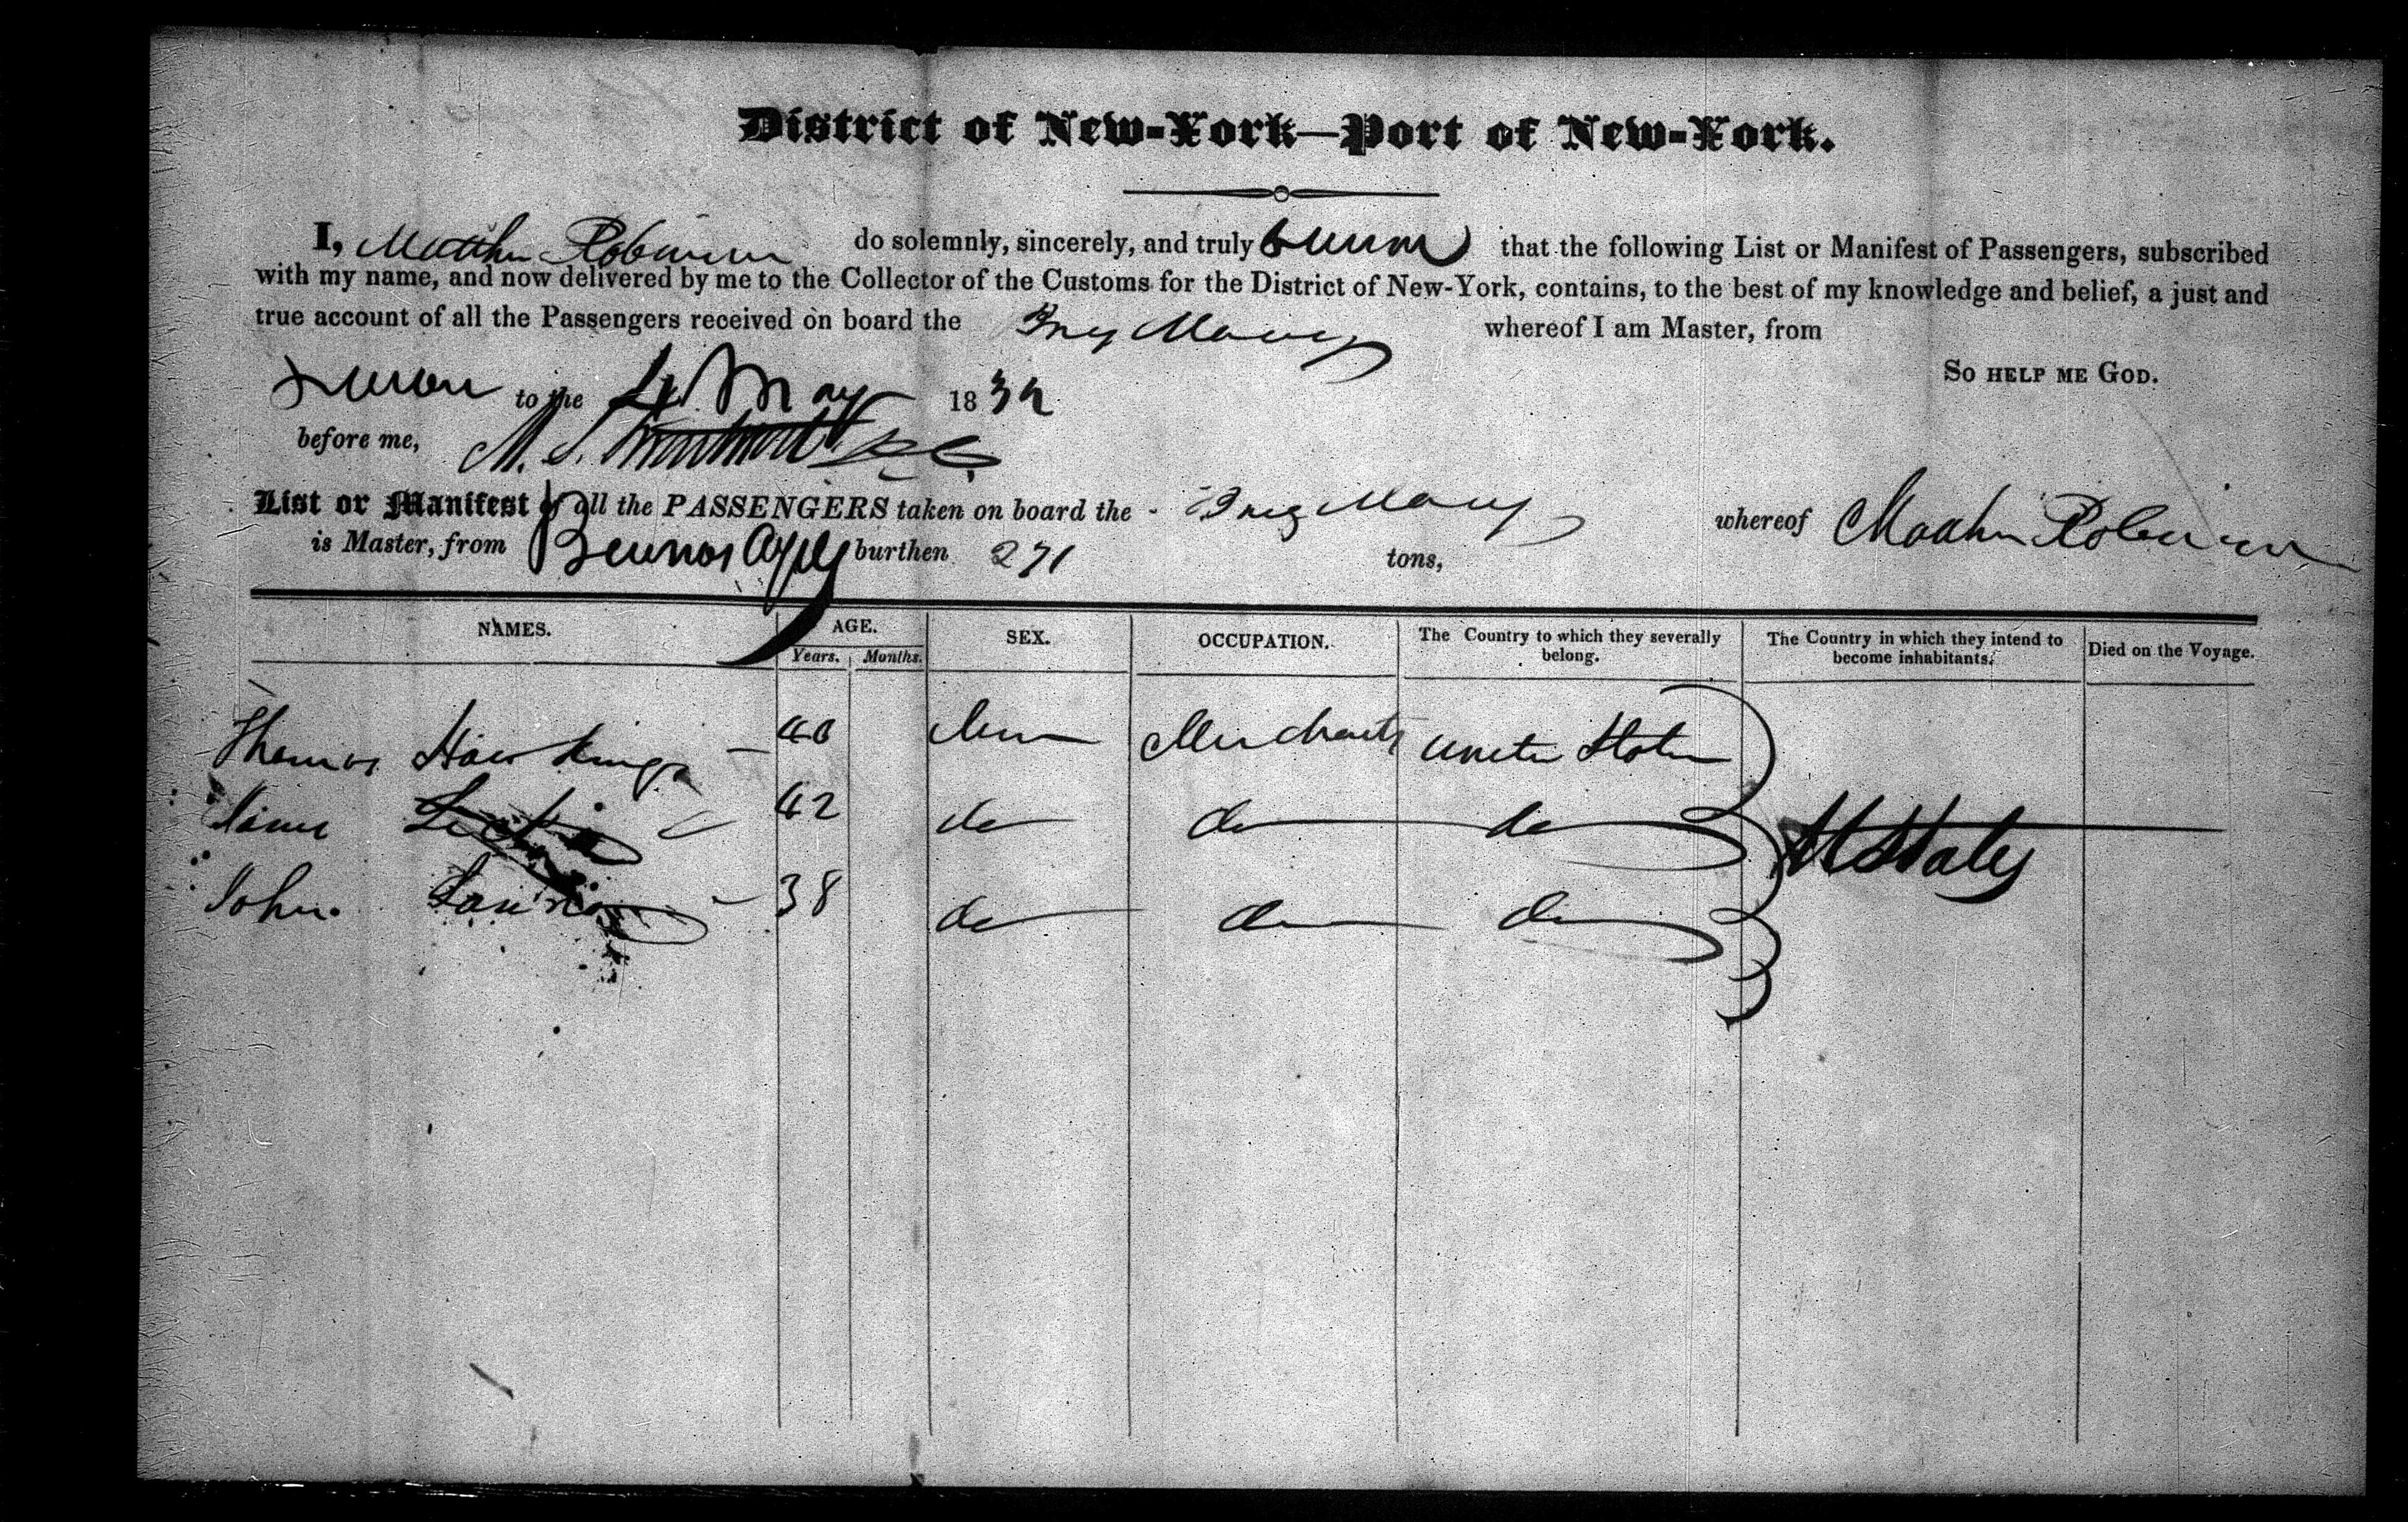 District of New-York—Port of New-York.
I, Matthew Robinson do solemnly, sincerely, and truly swear that the following List or Manifest of Passengers, subscribed
with my name, and now delivered by me to the Collector of the Customs for the District of New-York, contains, to the best of my knowledge and belief, a just and
true account of all the Passengers received on board the Brig Mary whereof I am Master, from
So HELP ME GOD.
Sworn to the 4 May 183
before me, M. S.
List or Manifest of all the PASSENGERS taken on board the Brig Mary whereof Matthew Robinson
is Master, from Buenos Ayres burthen 271 tons,
NAMES. AGE. SEX. OCCUPATION. The Country to which they severally belong. The Country in which they intend to become inhabitants. Died on the Voyage.
Years. Months.
Thomas Hawkings 40 Men Merchants United States
James 42 do do do U States
John 38 do do do